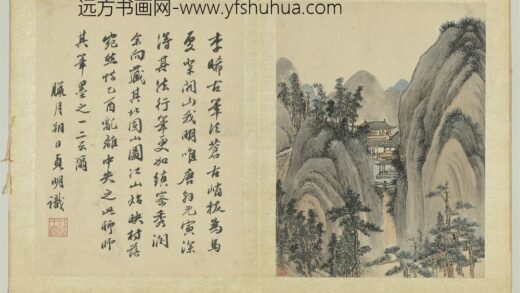 远方书画网-www.yfshuhua.com
李晞古筆法蒼古峭拔為馬
夏荣關山我明唯唐子允寅深
得其法行筆更加縝密秀潤
余向藏其北固山圖江山
宛然惜乙酉亂離中失之此師師
其筆墨之一二云爾
臘月朔日貞明識